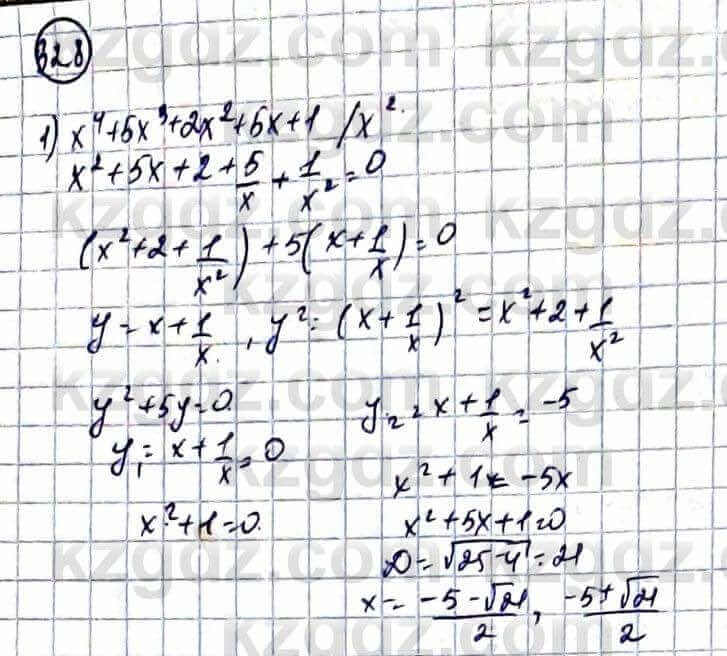 328
1) x⁴+5x³+2x²+5x+1 /x².
x²+5x+2+5/x+1/x²=0
(x²+2+1/x²)+5(x+1/x)=0
y=x+1/x., y²=(x+1/x)²=x²+2+1/x²
y²+5y=0.
y₁=x+1/x=0
x²+1=0.
y₂=x+1/x=-5
x²+1=-5x
x²+5x+1=0
D=√25-4=21
x=-5-√21/2, -5+√21/2
kzgdz.com